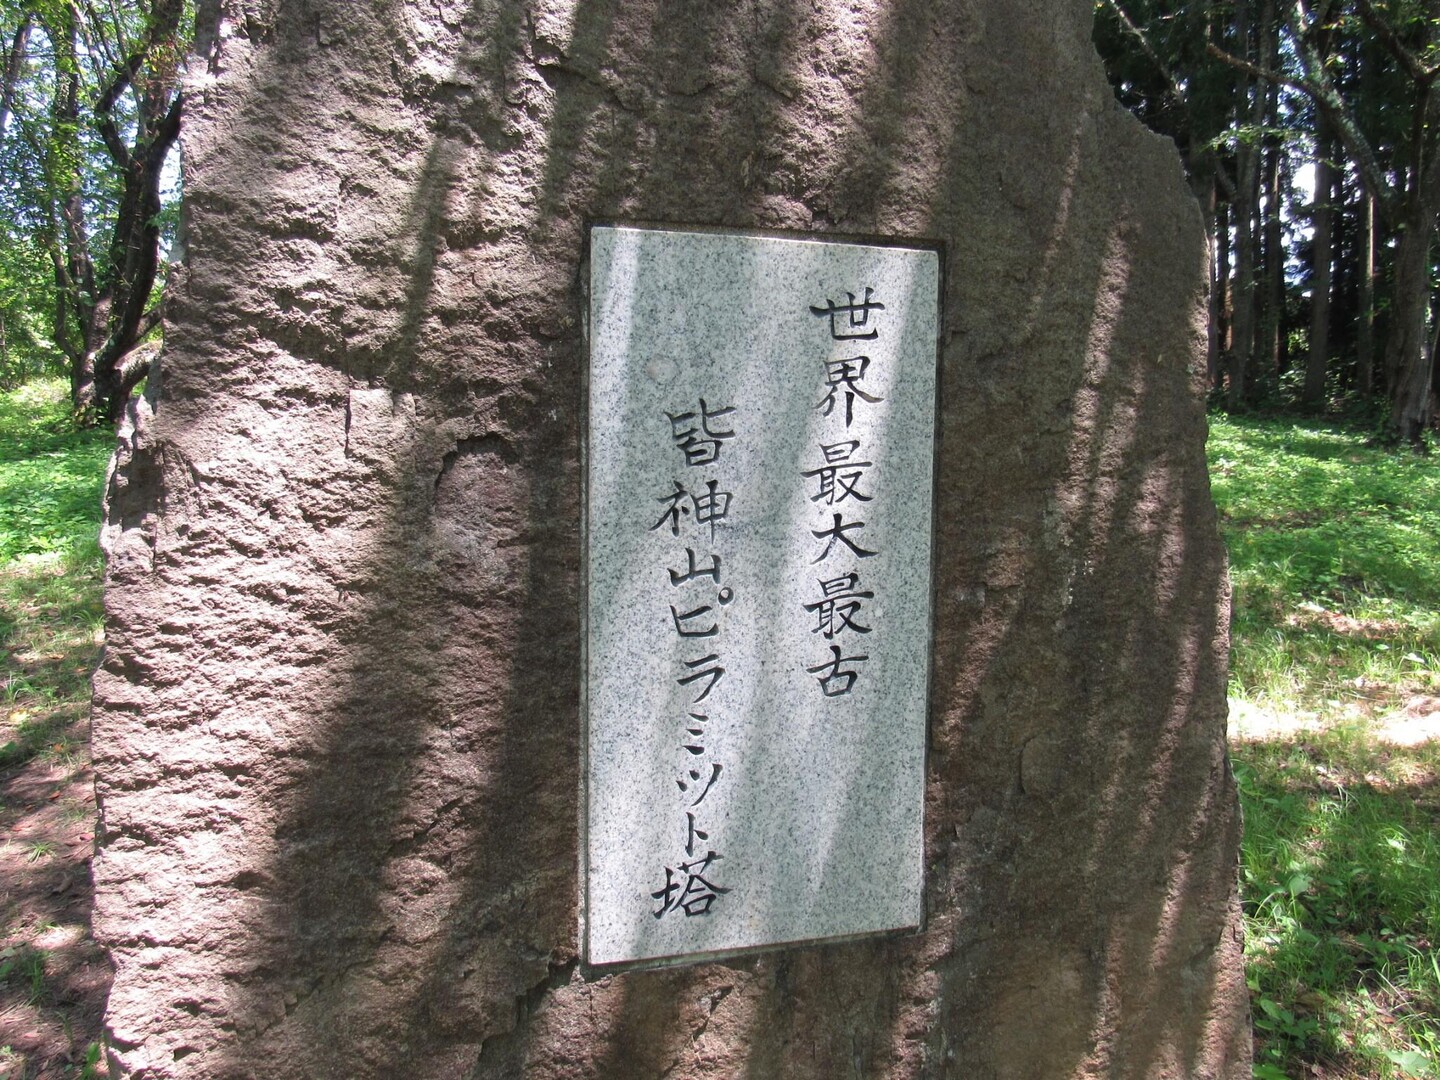 世界最大最古
皆神山ピラミット塔